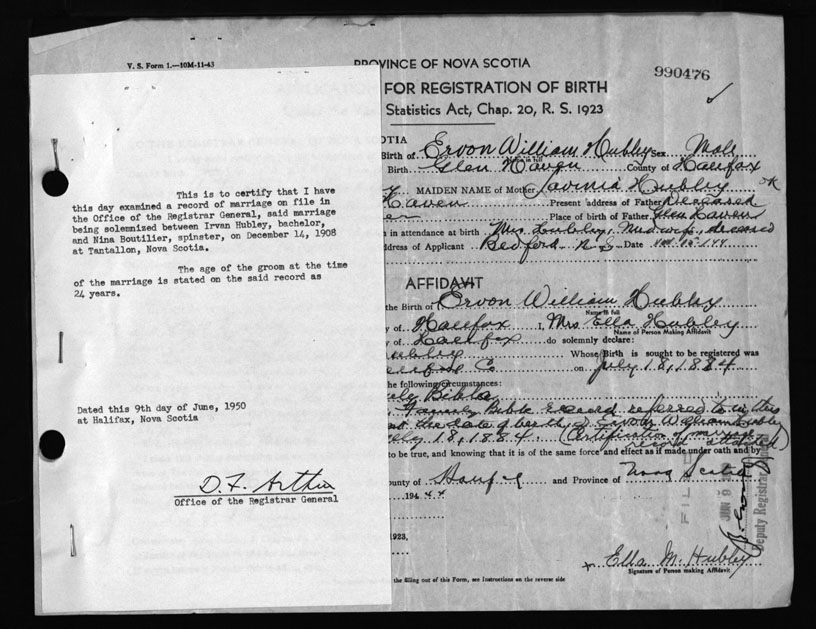 V. S. Form 1.—10M-11-43
PROVINCE OF NOVA SCOTIA
990476
FOR REGISTRATION OF BIRTH
Statistics Act, Chap. 20, R. S. 1923
OTIA
Birth of Ervon William Hubley Sex Male
Name in full
Birth Glen Haven County of Halifax
MAIDEN NAME of Mother Lavinia Hubley OK
Haven Present address of Father Deceased
Place of birth of Father Glen Haven
n in attendance at birth Mrs. Hubley, Midwife, deceased
ddress of Applicant Bedford N.S. Date
This is to certify that I have
this day examined a record of marriage on file in
the Office of the Registrar General, said marriage
being solemnized between Irvan Hubley, bachelor,
and Nina Boutilier, spinster, on December 14, 1908
at Tantallon, Nova Scotia.
The age of the groom at the time
of the marriage is stated on the said record as
24 years.
Dated this 9th day of June, 1950
at Halifax, Nova Scotia
D. F. Arthur
Office of the Registrar General
AFFIDAVIT
the Birth of Ervon William Hubley
Name in full
y of Halifax I, Mrs Ella Hubley
Name of Person Making Affidavit
y of Halifax do solemnly declare:
Hubley Whose Birth is sought to be registered was
Co on July 18, 1884
the following circumstances:
Bible
Family Bible record referred to in this
the date of birth of Ervon William Hubley
18, 1884. (Certification of marriage
record attached)
to be true, and knowing that it is of the same force and effect as if made under oath and by
ounty of and Province of Nova Scotia
194 44
FILED
JUN 9
Deputy Registrar
1923,
Ella M. Hubley
Signature of Person making Affidavit
the filling out of this Form, see Instructions on the reverse side